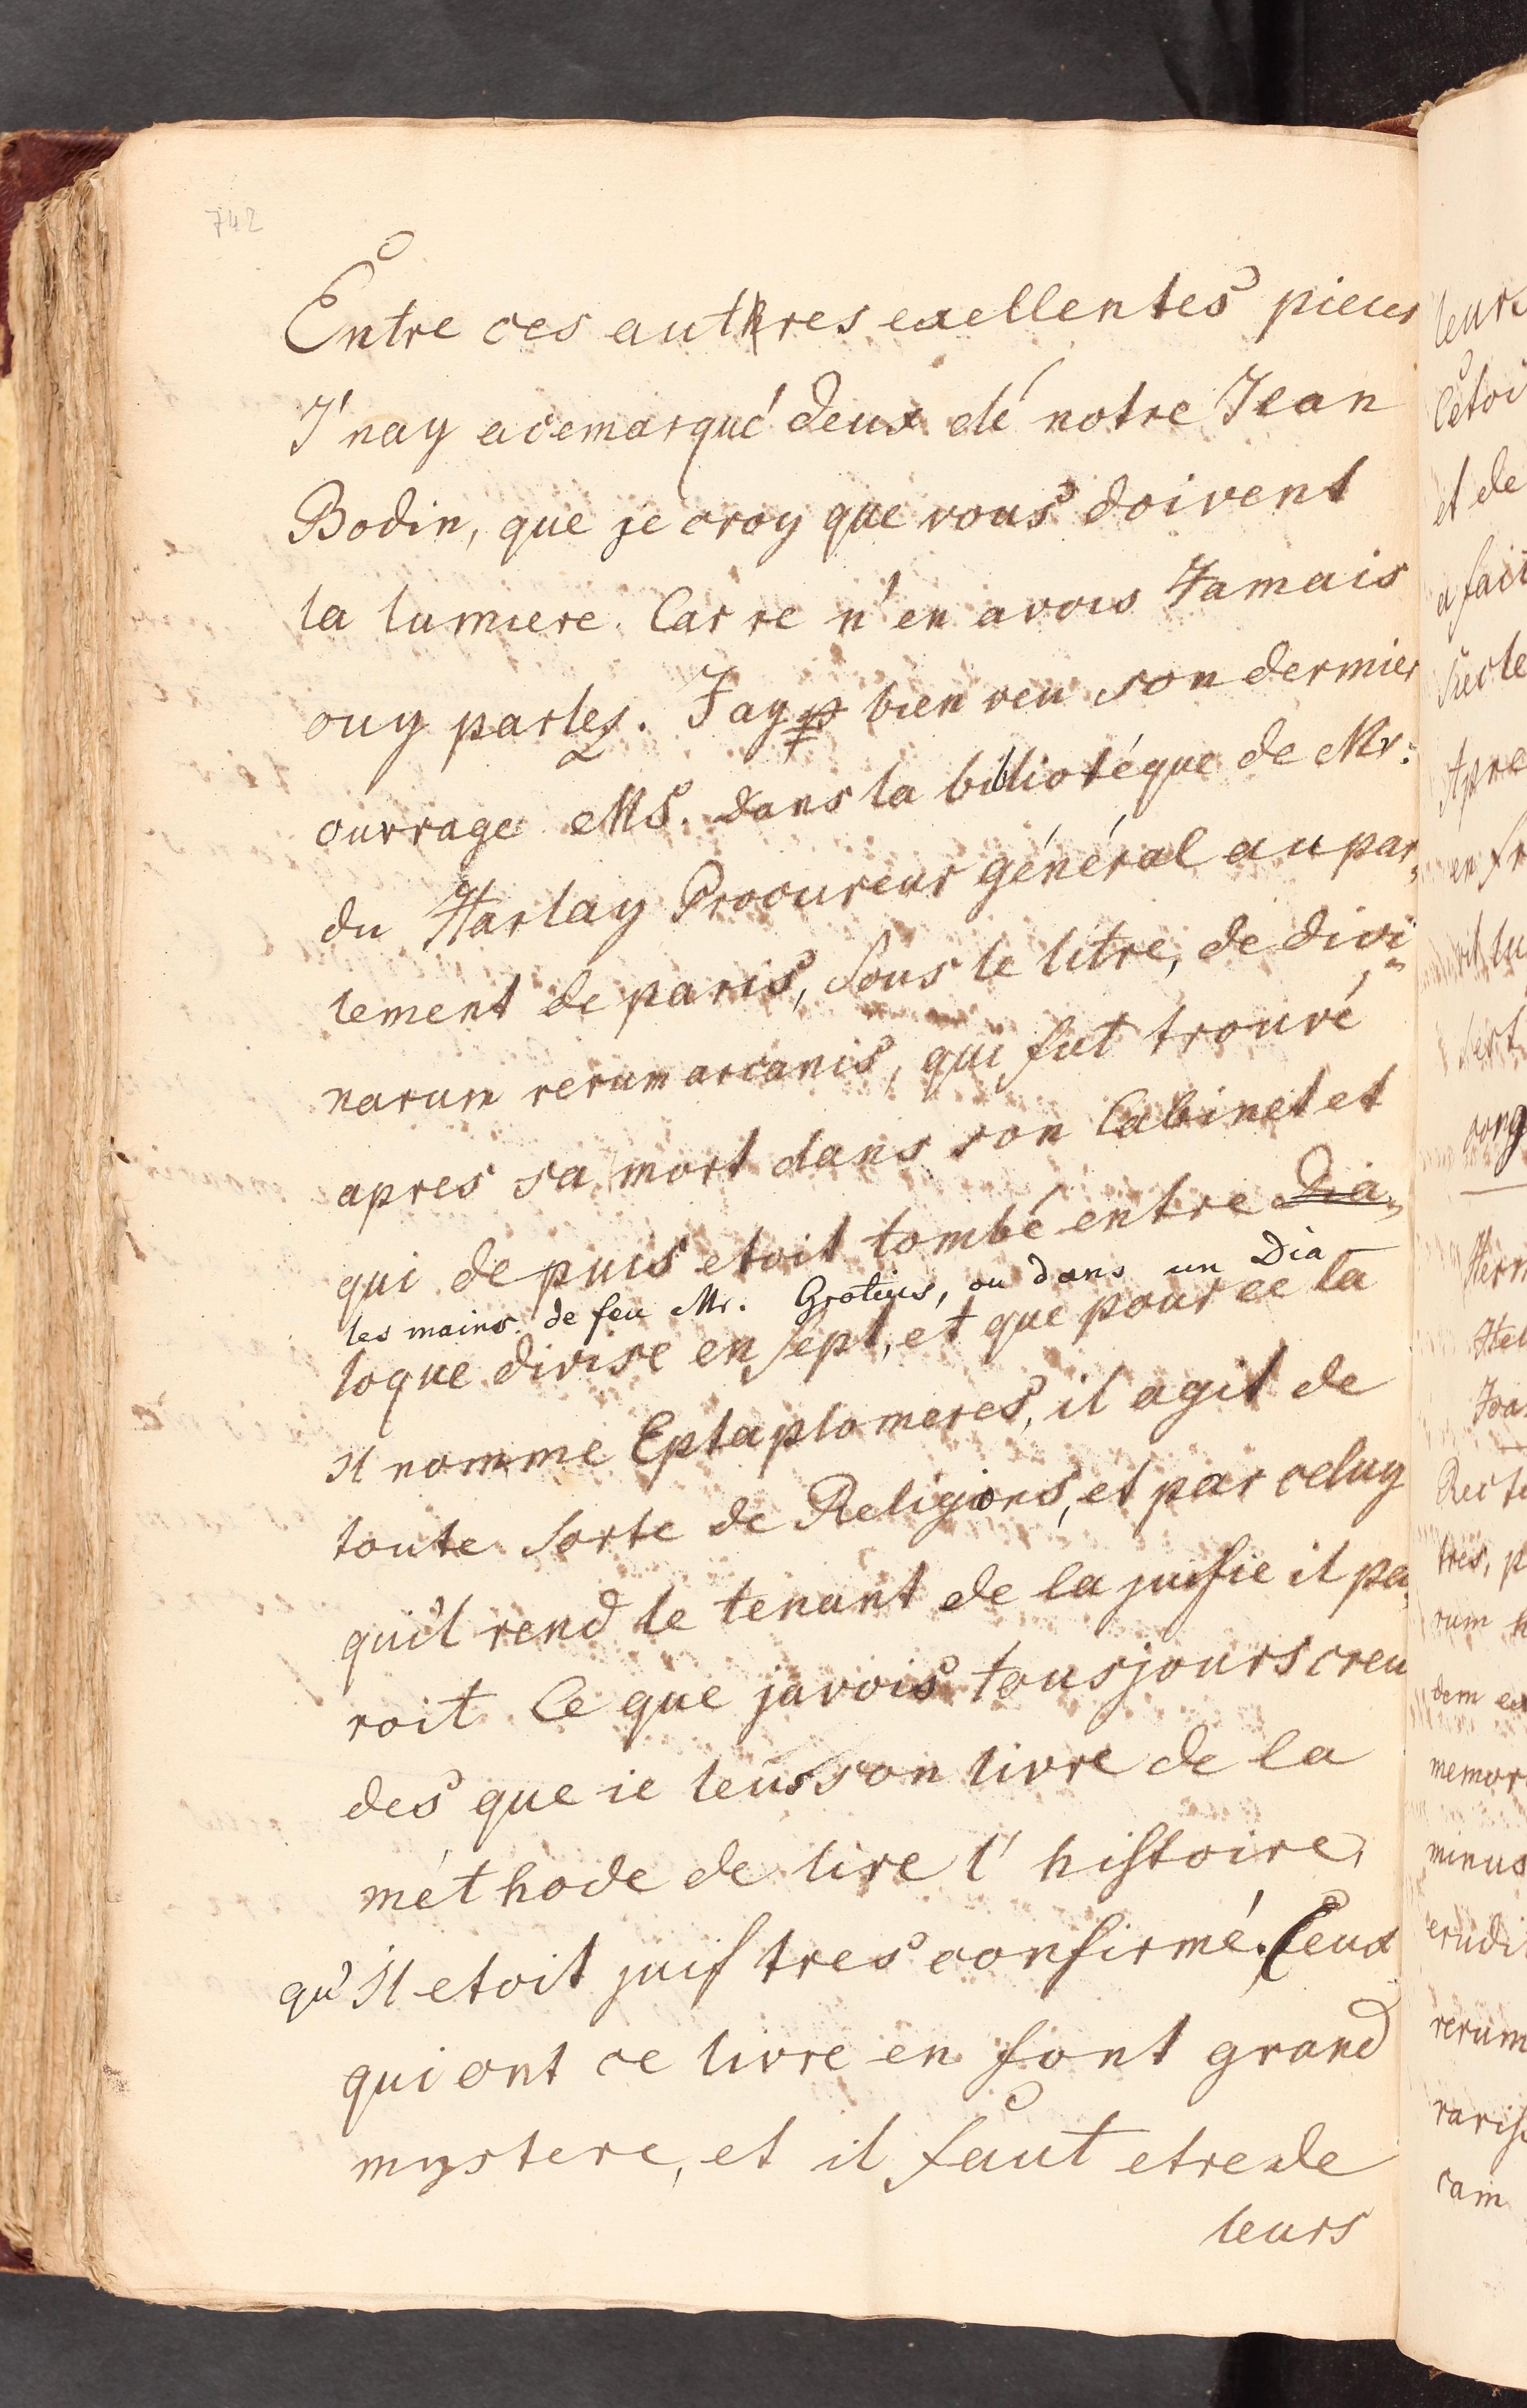 742
Entre ces autres exellentes pieces
J'nay acemarqué deux dé notre Jean
Bodin, que je croy que vous doivent
la lumiere. Car re n'en avois Jamais
ouy parler. Jay bien veu son dermier
ouvrage MS. dans la bibliotéque de Mr:
du Harlay Procureur général au par„
lement de paris, sous le litre, de divi„
narum rerum arcanis, qui fut trouvé
apres sa mort dans son Cabinet et
qui depuis etoit tombé entre Dia„
les mains de feu Mr. Grotius, ou dans un Dia
logue divise en sept, et que pour ce la
il nomme Eptaplomeres, il agit de
toute sorte de Religions, et par celuy
qu'il rend le tenant de la juifie il pa„
roit Ce que javois tousjours creu
des que ie leus son livre de la
méthode de lire l'histoire,
qu'il etoit juif tres confirmé. Ceux
qui ont ce livre en font grand
mystere, et il faut etre de
leurs
leurs
et de
a fait
siecle
en fr
cong
Recte
tres, p
rum h
dem ex
memor
minus
erudi
rerum
raris
cam